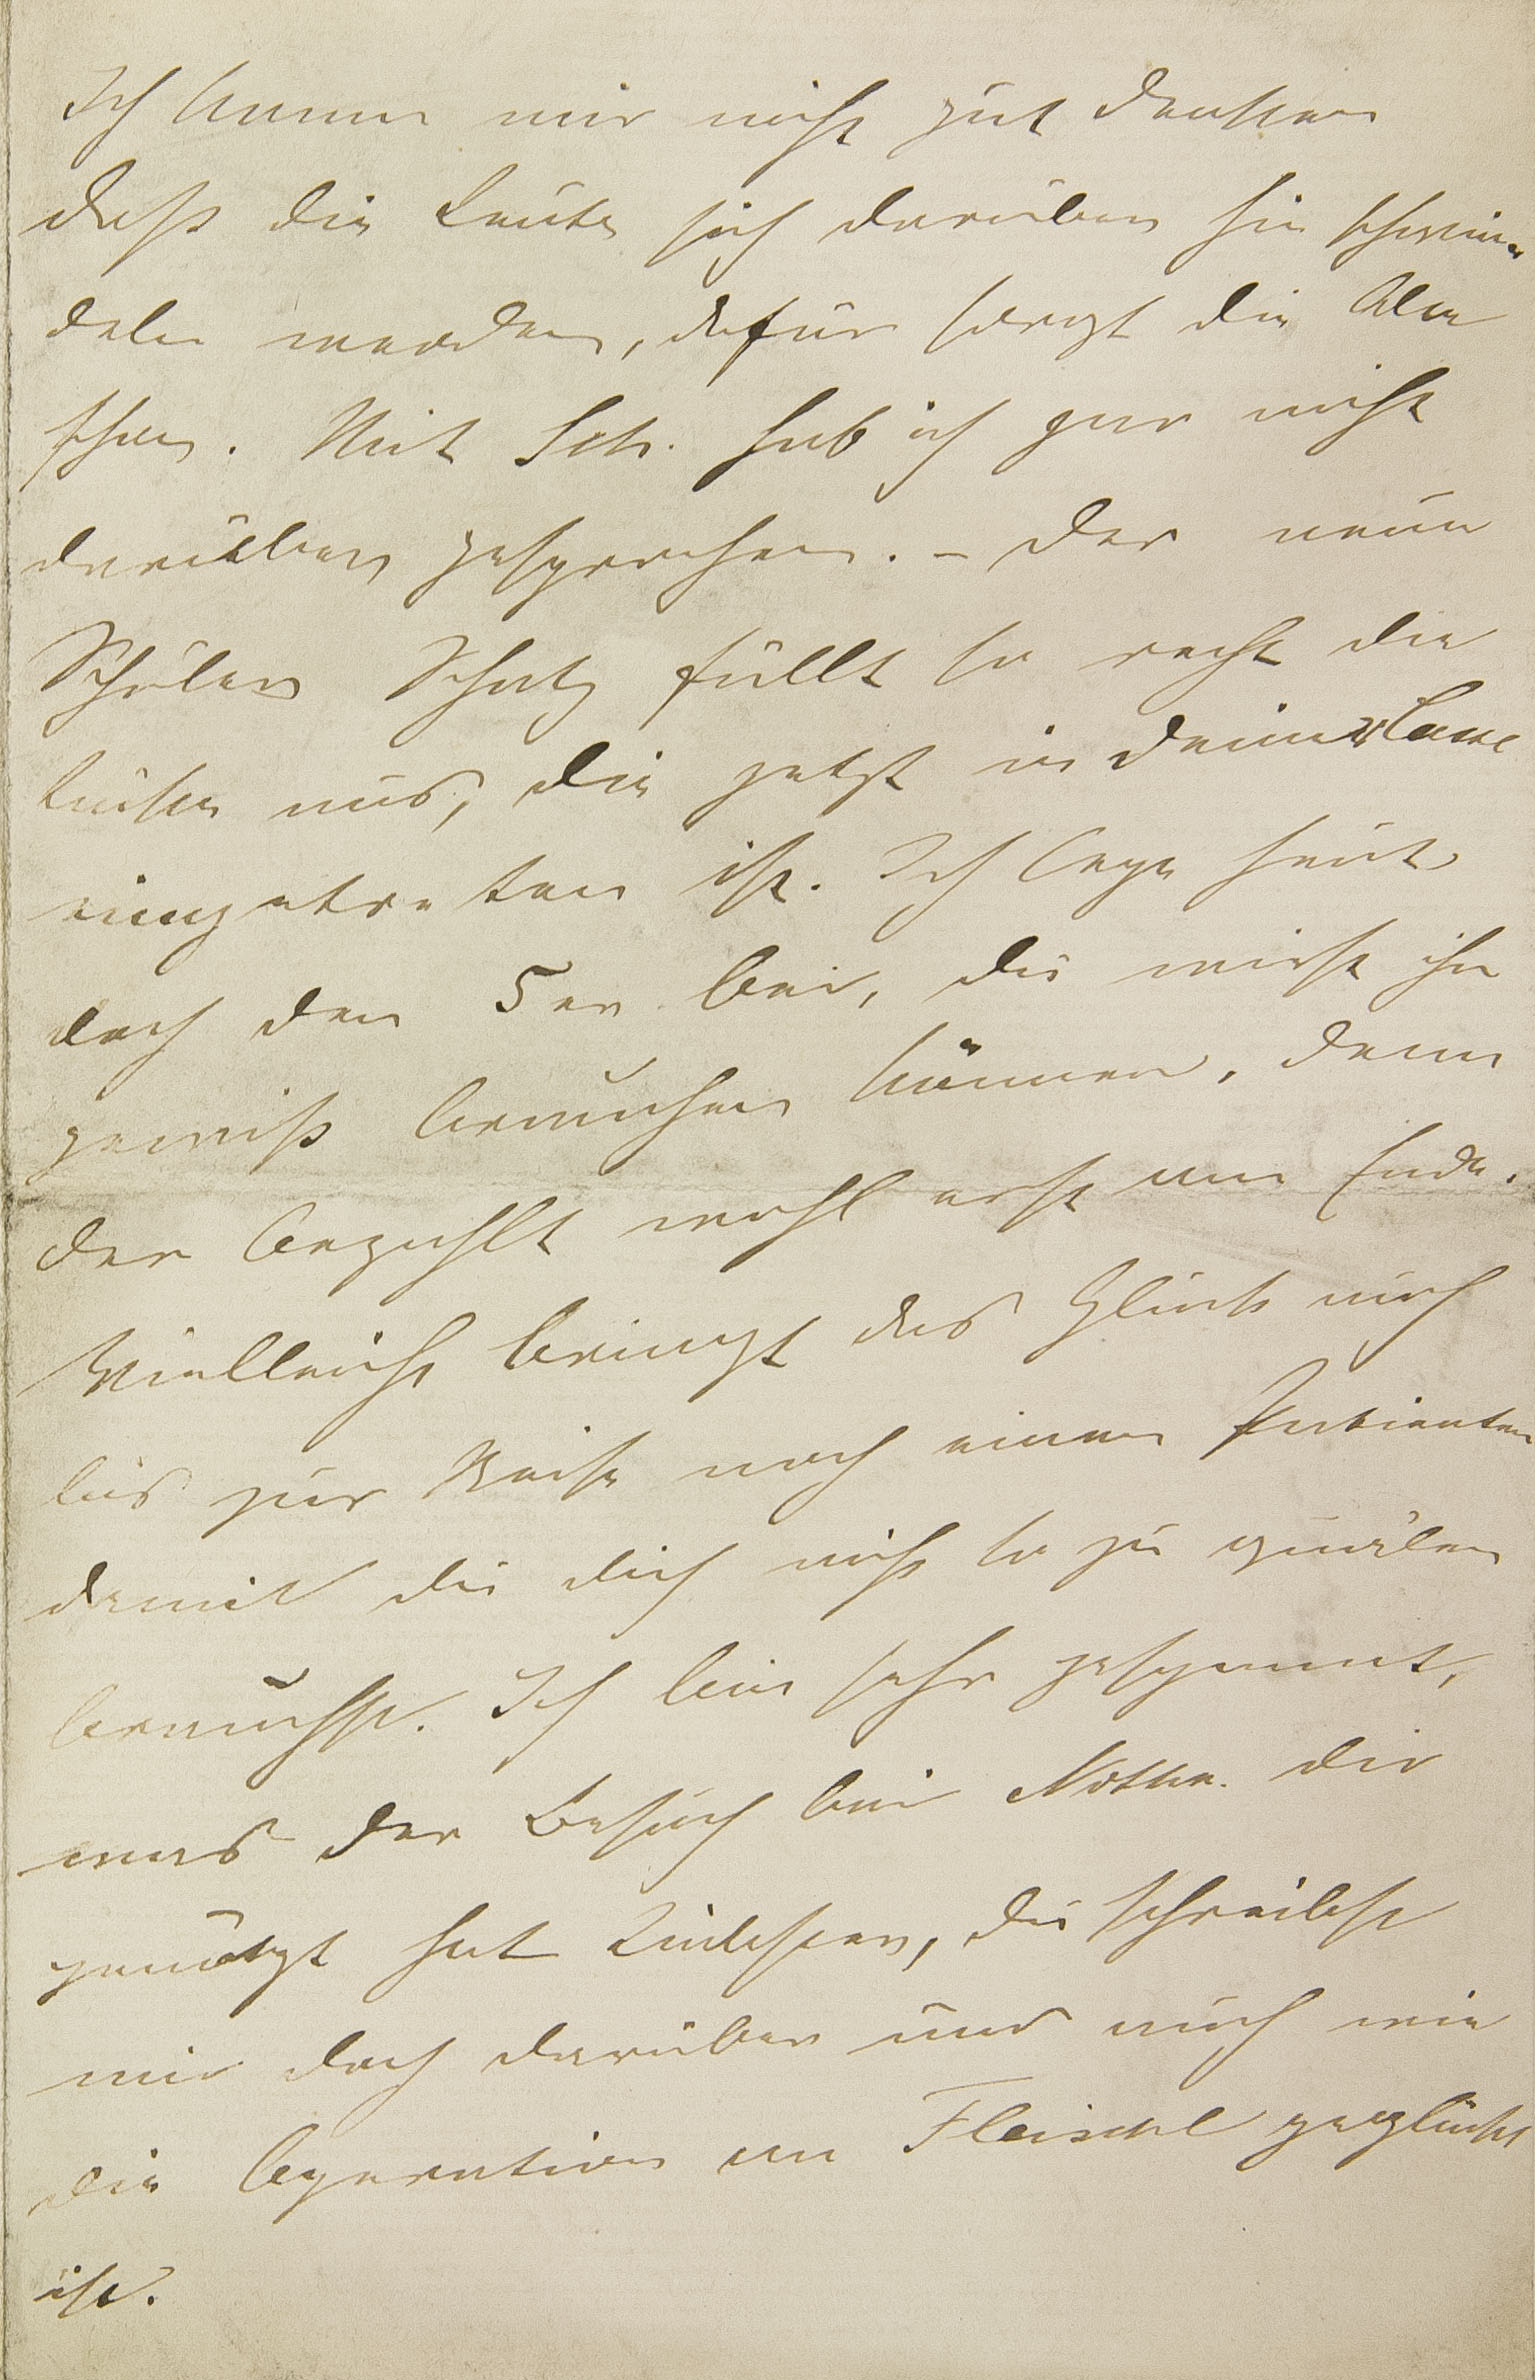 Ich kann mir nicht gut denken
daß die Leute sich darüber hin schwin-
deln werden, dafür sorgt die
schon. Mit Sch. hab ich gar nicht
darüber gesprochen. – Der neue
Schüler Schatz füllt so recht die
Lücke aus, die jetzt in deiner Casse
eingetreten ist. Ich lege heut
doch den 5er bei, du wirst ihn
gewiß brauchen können, denn
der bezahlt wohl erst am Ende.
Vielleicht bringt das Glück auch
bis zur Reise noch einen Patienten
damit du dich nicht so zu quälen
brauchst. Ich bin sehr gespannt,
was der Besuch bei Nothn. dir
genützt hat Liebster, du schreibst
mir doch darüber und auch wie
die Operation an Fleischl geglückt
ist.